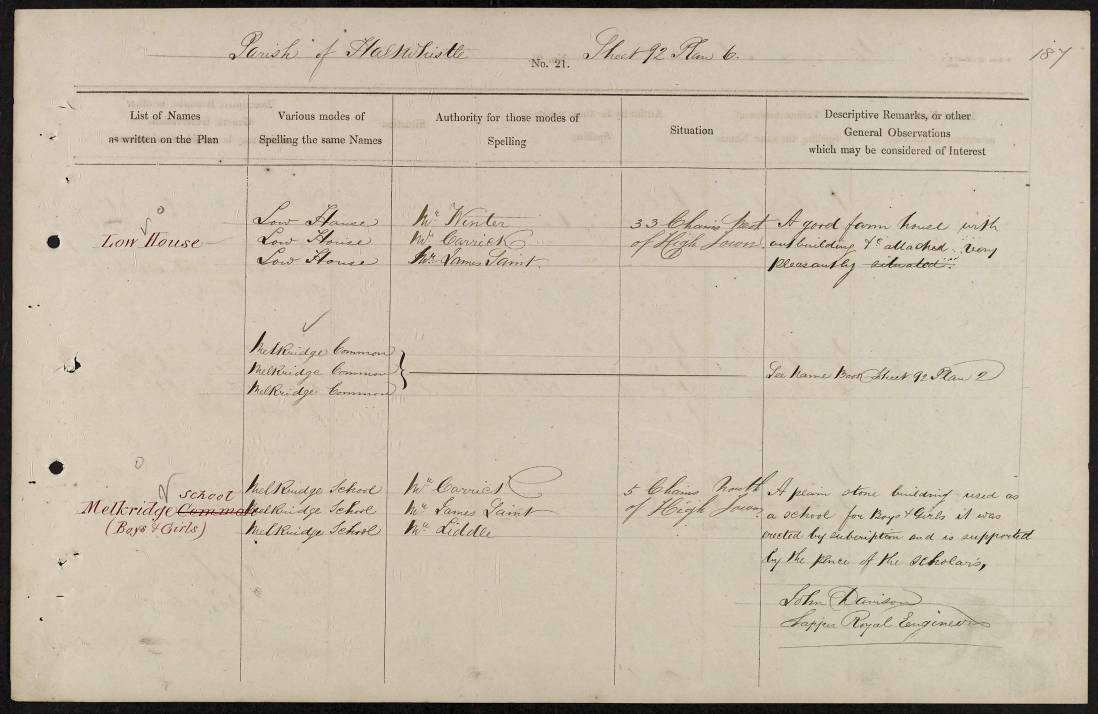 Parish of Haltwhistle No. 21. Sheet 92 Plan 6. 187
List of Names
as written on the Plan
Various modes of
Spelling the same Names
Authority for those modes of
Spelling
Situation
Descriptive Remarks, or other
General Observations
which may be considered of Interest
Low House
Low House
Low House
Low House
Mr. Winter
Mr. Carrick
Mr. James Saint.
33 Chains West
of High Town
A good farm house with
outbuilding &c attached, very
pleasantly situated.
Melkridge Common
Melkridge Common
Melkridge Common
See Name Book Sheet 92 Plan 2
Melkridge Common School
(Boys & Girls)
Melkridge School
Melkridge School
Melkridge School
Mr. Carrick
Mr. James Saint
Mr. Liddle
5 Chains North
of High Town
A plain stone building used as
a school for Boys & Girls it was
erected by subcription and is supported
by the pence of the scholars,
John Davison
Sapper Royal Engineers